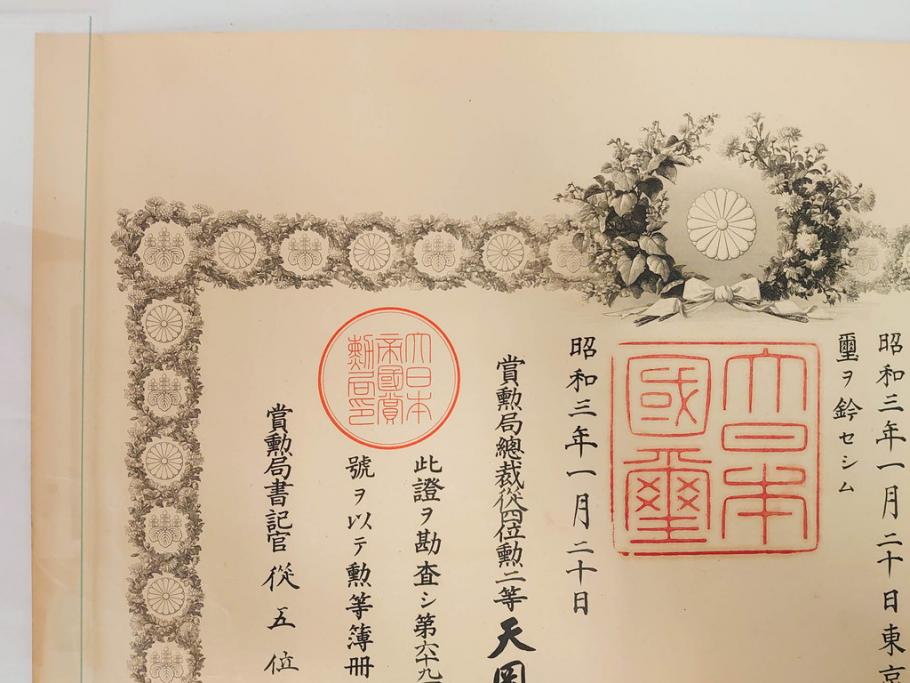 昭和三年一月二十日東京
璽ヲ鈐セシム
大日本
國璽
昭和三年一月二十日
賞勲局總裁從四位勲二等天岡
此證ヲ勘査シ第六十九
號ヲ以テ勲等簿冊
大日本
帝國賞
勲局印
賞勲局書記官從五位